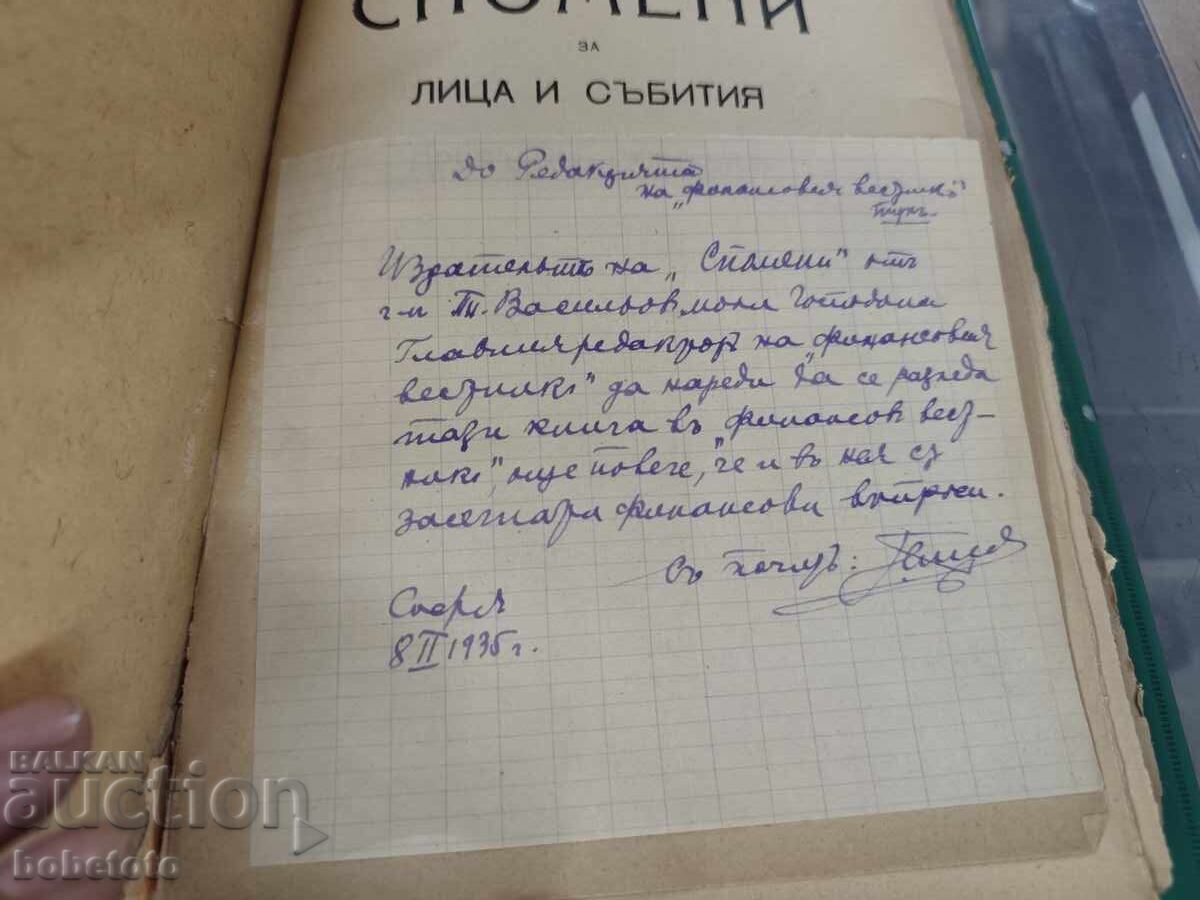 СПОМЕНИ
ЗА
ЛИЦА И СЪБИТИЯ
До Редакцията
на „Финансовия вестникъ"
тукъ.
Издательтъ на „Спомени" отъ
г-н Т. Васильовъ моли Господина
Главния редакторъ на „Финансовия
вестникъ" да нареди да се разгледа
тази книга въ „Финансовъ вест-
никъ", още повече, че и въ нея сѫ
засегнати финансови въпроси.
Съ почить:
София
8 II 1935 г.
BALKAN
auction
bobefoto